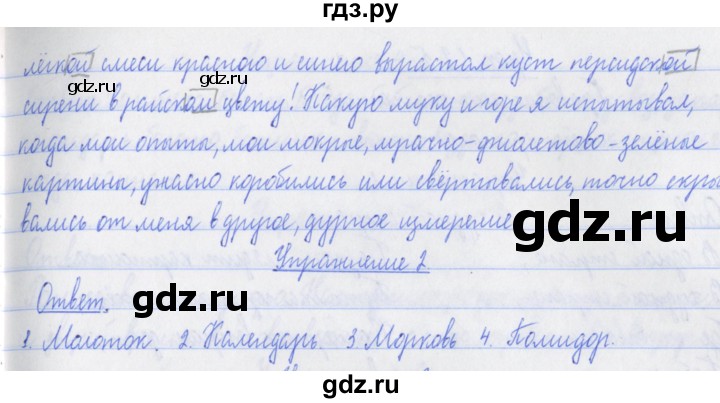 гдз.ру
лёгкой смеси красного и синего вырастал куст персидской
сирени в райском цвету! Какую муку и горе я испытывал,
когда мои опыты, мои мокрые, мрачно-фиалетово-зелёные
картины, ужасно коробились или свёртывались, точно скры
вались от меня в другое, дурное измерение
gdz.ru
gdz.ru
Упражнение 2
Ответ.
1. Молоток. 2. Календарь 3 Морковь 4. Помидор.
gdz.ru